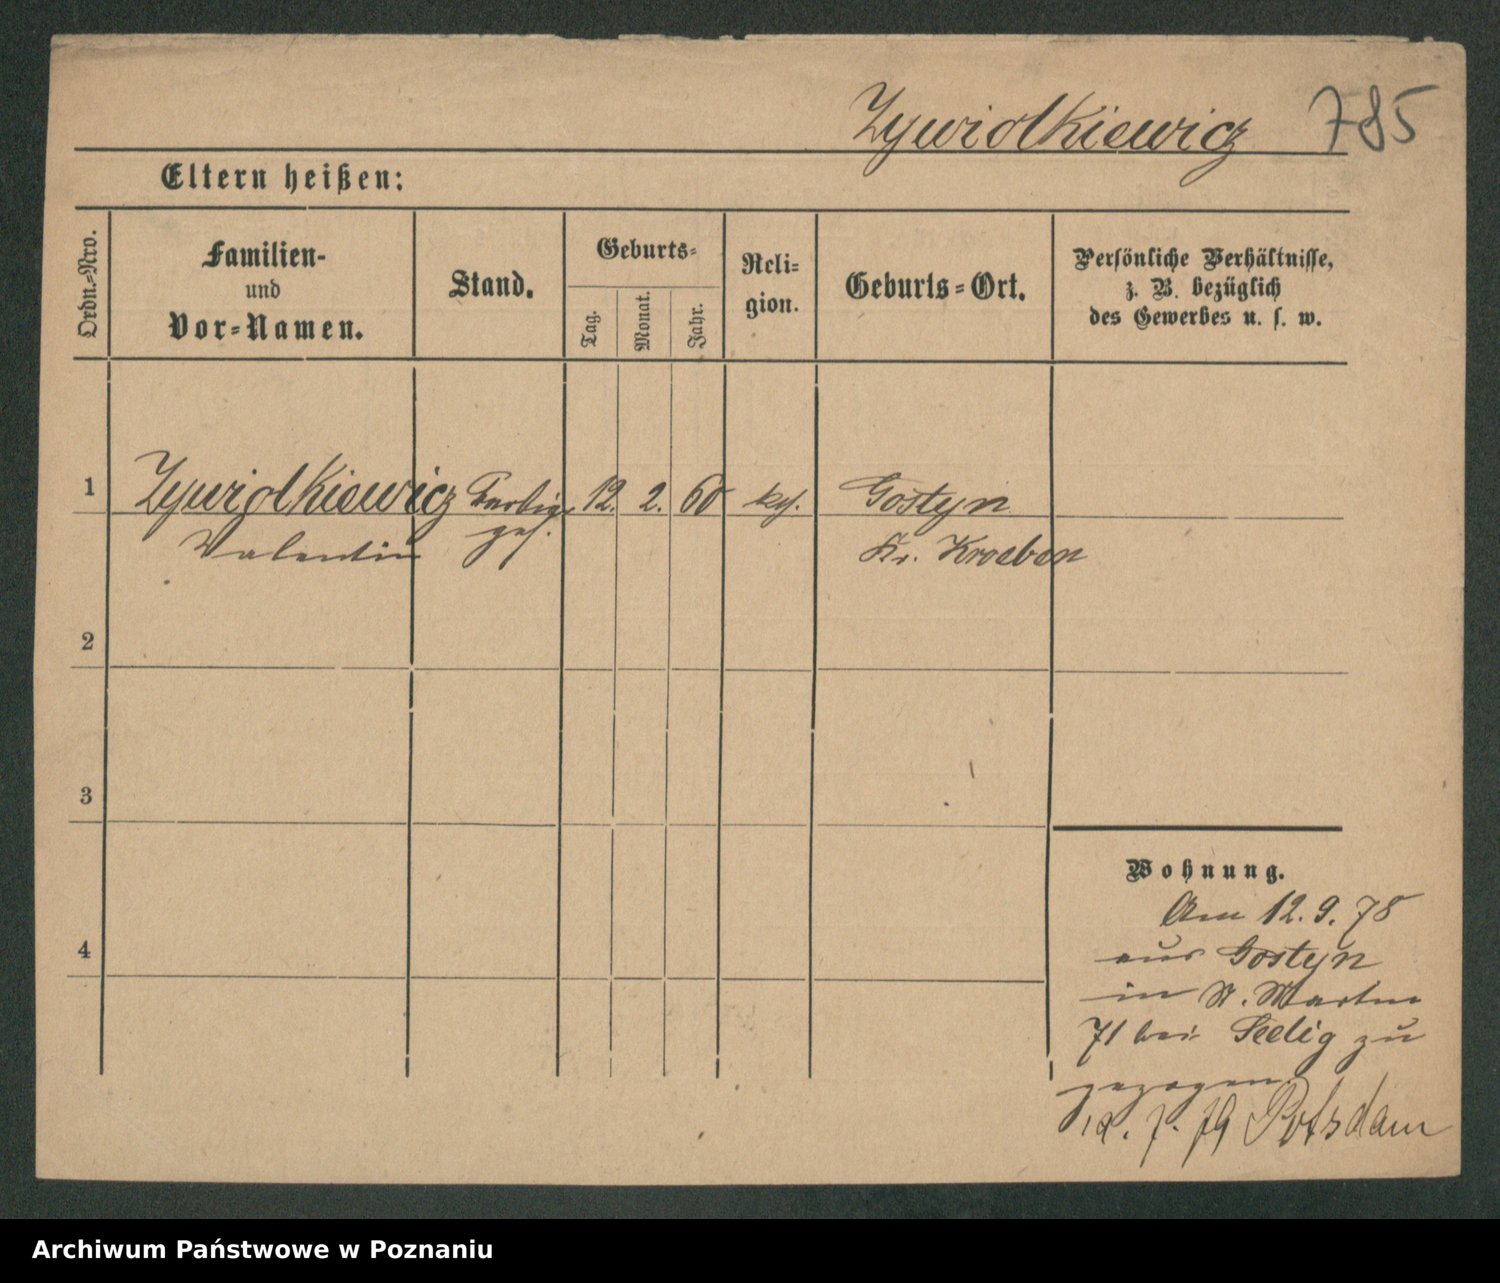 Zywiolkiewicz 785
Eltern heißen:
Ordn.-Nro.
Familien-
und
Vor-Namen.
Stand.
Geburts-
Tag.
Monat.
Jahr.
Reli-
gion.
Geburts-Ort.
Persönliche Verhältnisse,
z. B. bezüglich
des Gewerbes u. s. w.
1 Zywiolkiewicz 12. 2. 60 Gostyn
Valentin Kr. Kroeben
2
3
4
Wohnung.
Am 12.9.78
aus Gostyn
in St. Martin
71 bei Seelig zu
gezogen.
7. 79 Potsdam
Archiwum Państwowe w Poznaniu